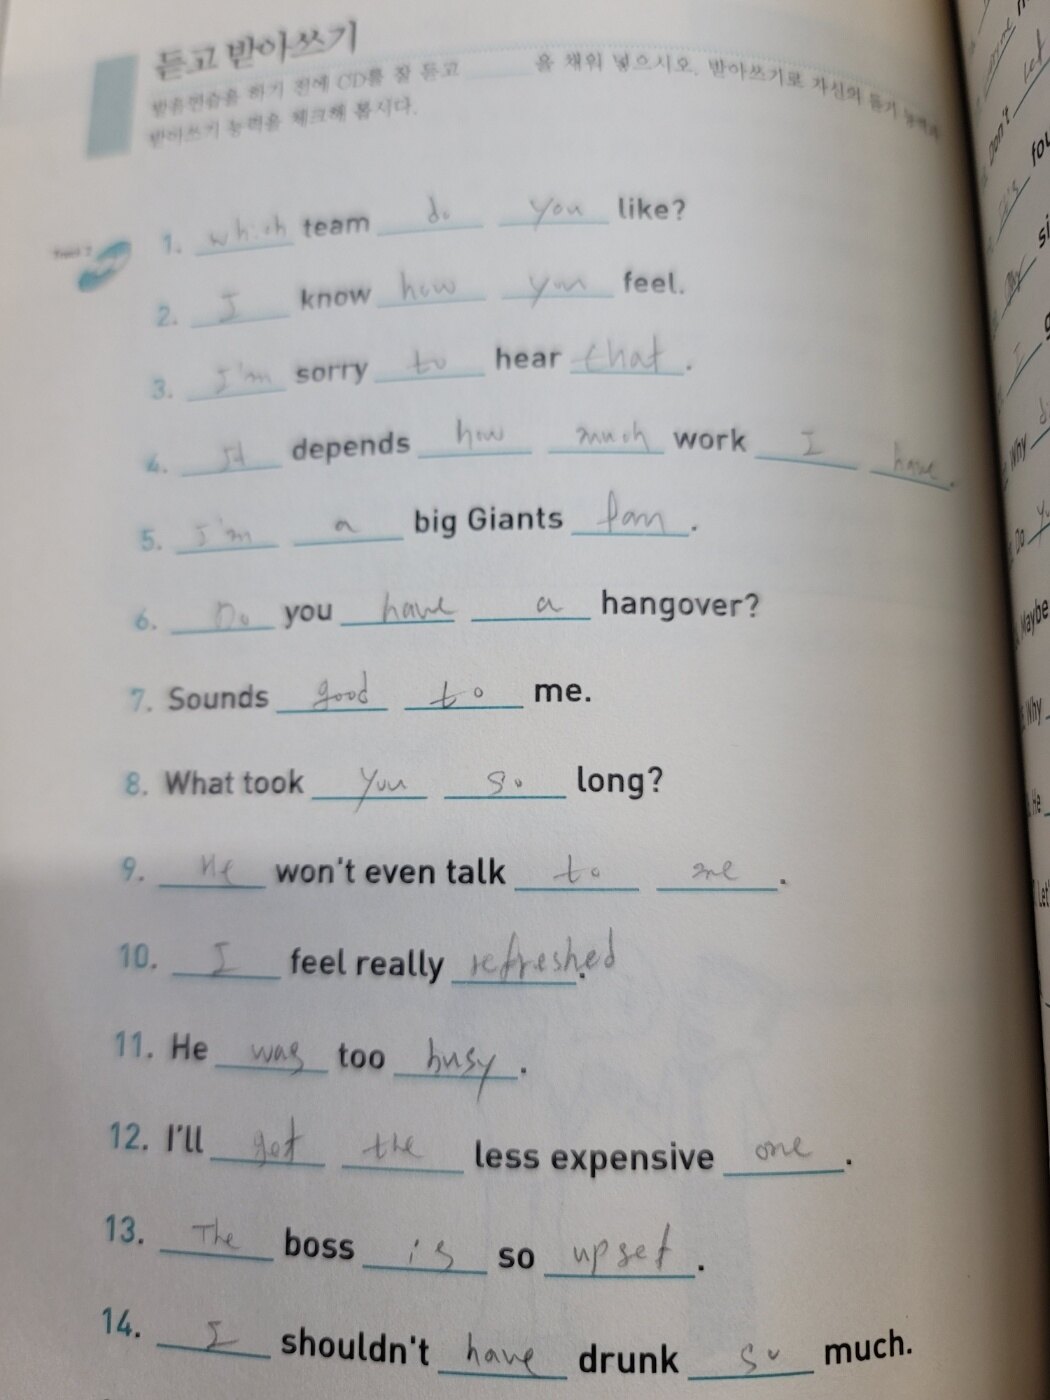 듣고 받아쓰기
발음연습을 하기 전에 CD를 잘 듣고 ______ 을 채워 넣으시오. 받아쓰기로 자신의 듣기 능력과
받아쓰기 능력을 체크해 봅시다.
1. which team do you like?
2. I know how you feel.
3. I'm sorry to hear that.
4. It depends how much work I have.
5. I'm a big Giants fan.
6. Do you have a hangover?
7. Sounds good to me.
8. What took you so long?
9. He won't even talk to me.
10. I feel really refreshed.
11. He was too busy.
12. I'll get the less expensive one.
13. The boss is so upset.
14. I shouldn't have drunk so much.
Don't
Let
Why
Do
Maybe
Why
He
Let